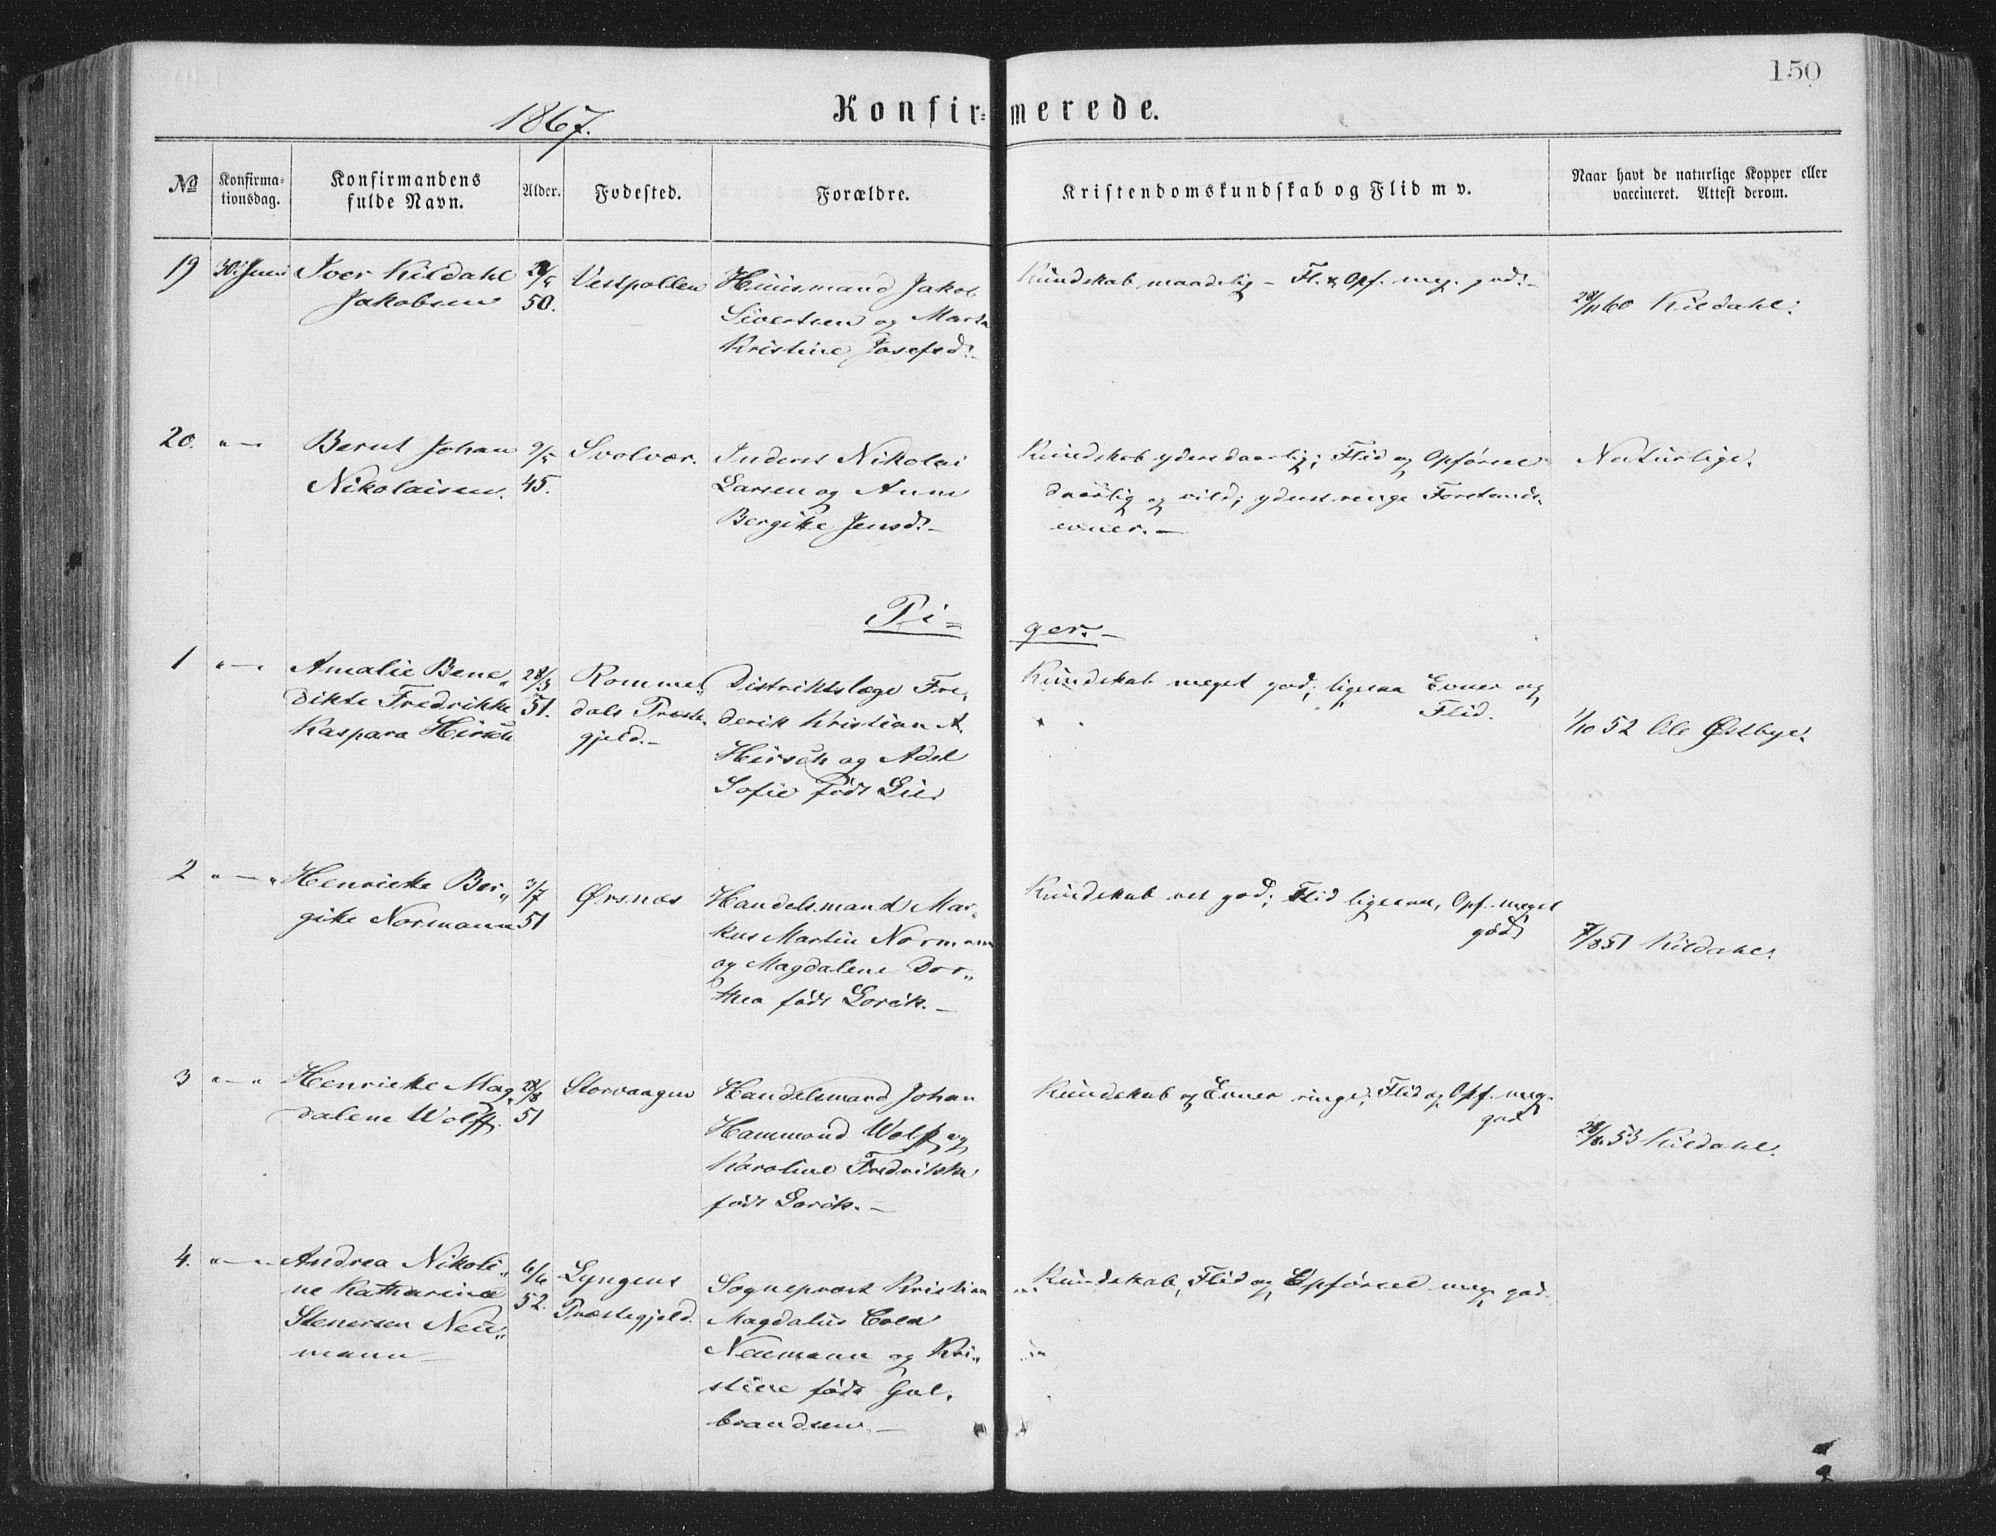 150
1867.
Konfirmerede.
№
Konfirma-
tionsdag.
Konfirmandens
fulde Navn.
Alder.
Fødested.
Forældre.
Kristendomskundskab og Flid m v.
Naar havt de naturlige Kopper eller
vaccineret. Attest derom.
19 30. Juni Iver Kildahl
Jakobsen
50.
Vestpollen
Huusmand Jakob
Sivertsen og Marta
Kristine Josefsd.
Kundskab maadelig – Fl. & Opf. meg. god. –
28/11 60 Kildahl.
20. "—
Bernt Johan
Nikolaisen.
9/5
45.
Svolvær.
Inderst Nikolai
Larsen og Anne
Bergitte Jensd. –
Kundskab yderst daarlig; Flid og Opførsel
daarlig og vild; yderst ringe Forstands-
evner. –
Naturlige.
Pi=
ger. –
1 "—"
Amalie Bene„
dikte Fredrikke
Kaspara Hirsch
28/3
51.
Rommel„
dals Præste„
gjeld. –
Distriktslæge Fre„
derik Kristian A.
Hirsch og Adel
Sofie født Lie
Kundskab meget god; ligesaa Evner og
Flid.
1/10 52 Ole Østbye.
2 "—"
Henrikke Ber„
gitte Normann
3/7
51
Ørsnæs
Handelsmand Mar„
kus Martin Normann
og Magdalene Dor„
thea født Lorck. –
Kundskab ret god; Flid ligesaa, Opf. meget
god
7/8 51 Kildahl.
3 "—"
Henrikke Mag„
dalene Wolff.
28/8
51
Storvaagen
Handelsmand Johan
Hammond Wolff og
Karoline Fredrikke
født Lorck. –
Kundskab og Evner ringe, Flid og Opf. meg.
god
53 Kildahl.
4. "—"
Andrea Nikoli„
ne Katharina
Stenersen Neu„
mann –
6/6
52.
Lyngens
Præstegjeld.
Sognepræst Kristian
Magdalus
Neumann og Kri„
stine født Gul„
brandsen. –
Kundskab, Flid og Opførsel meg. god.